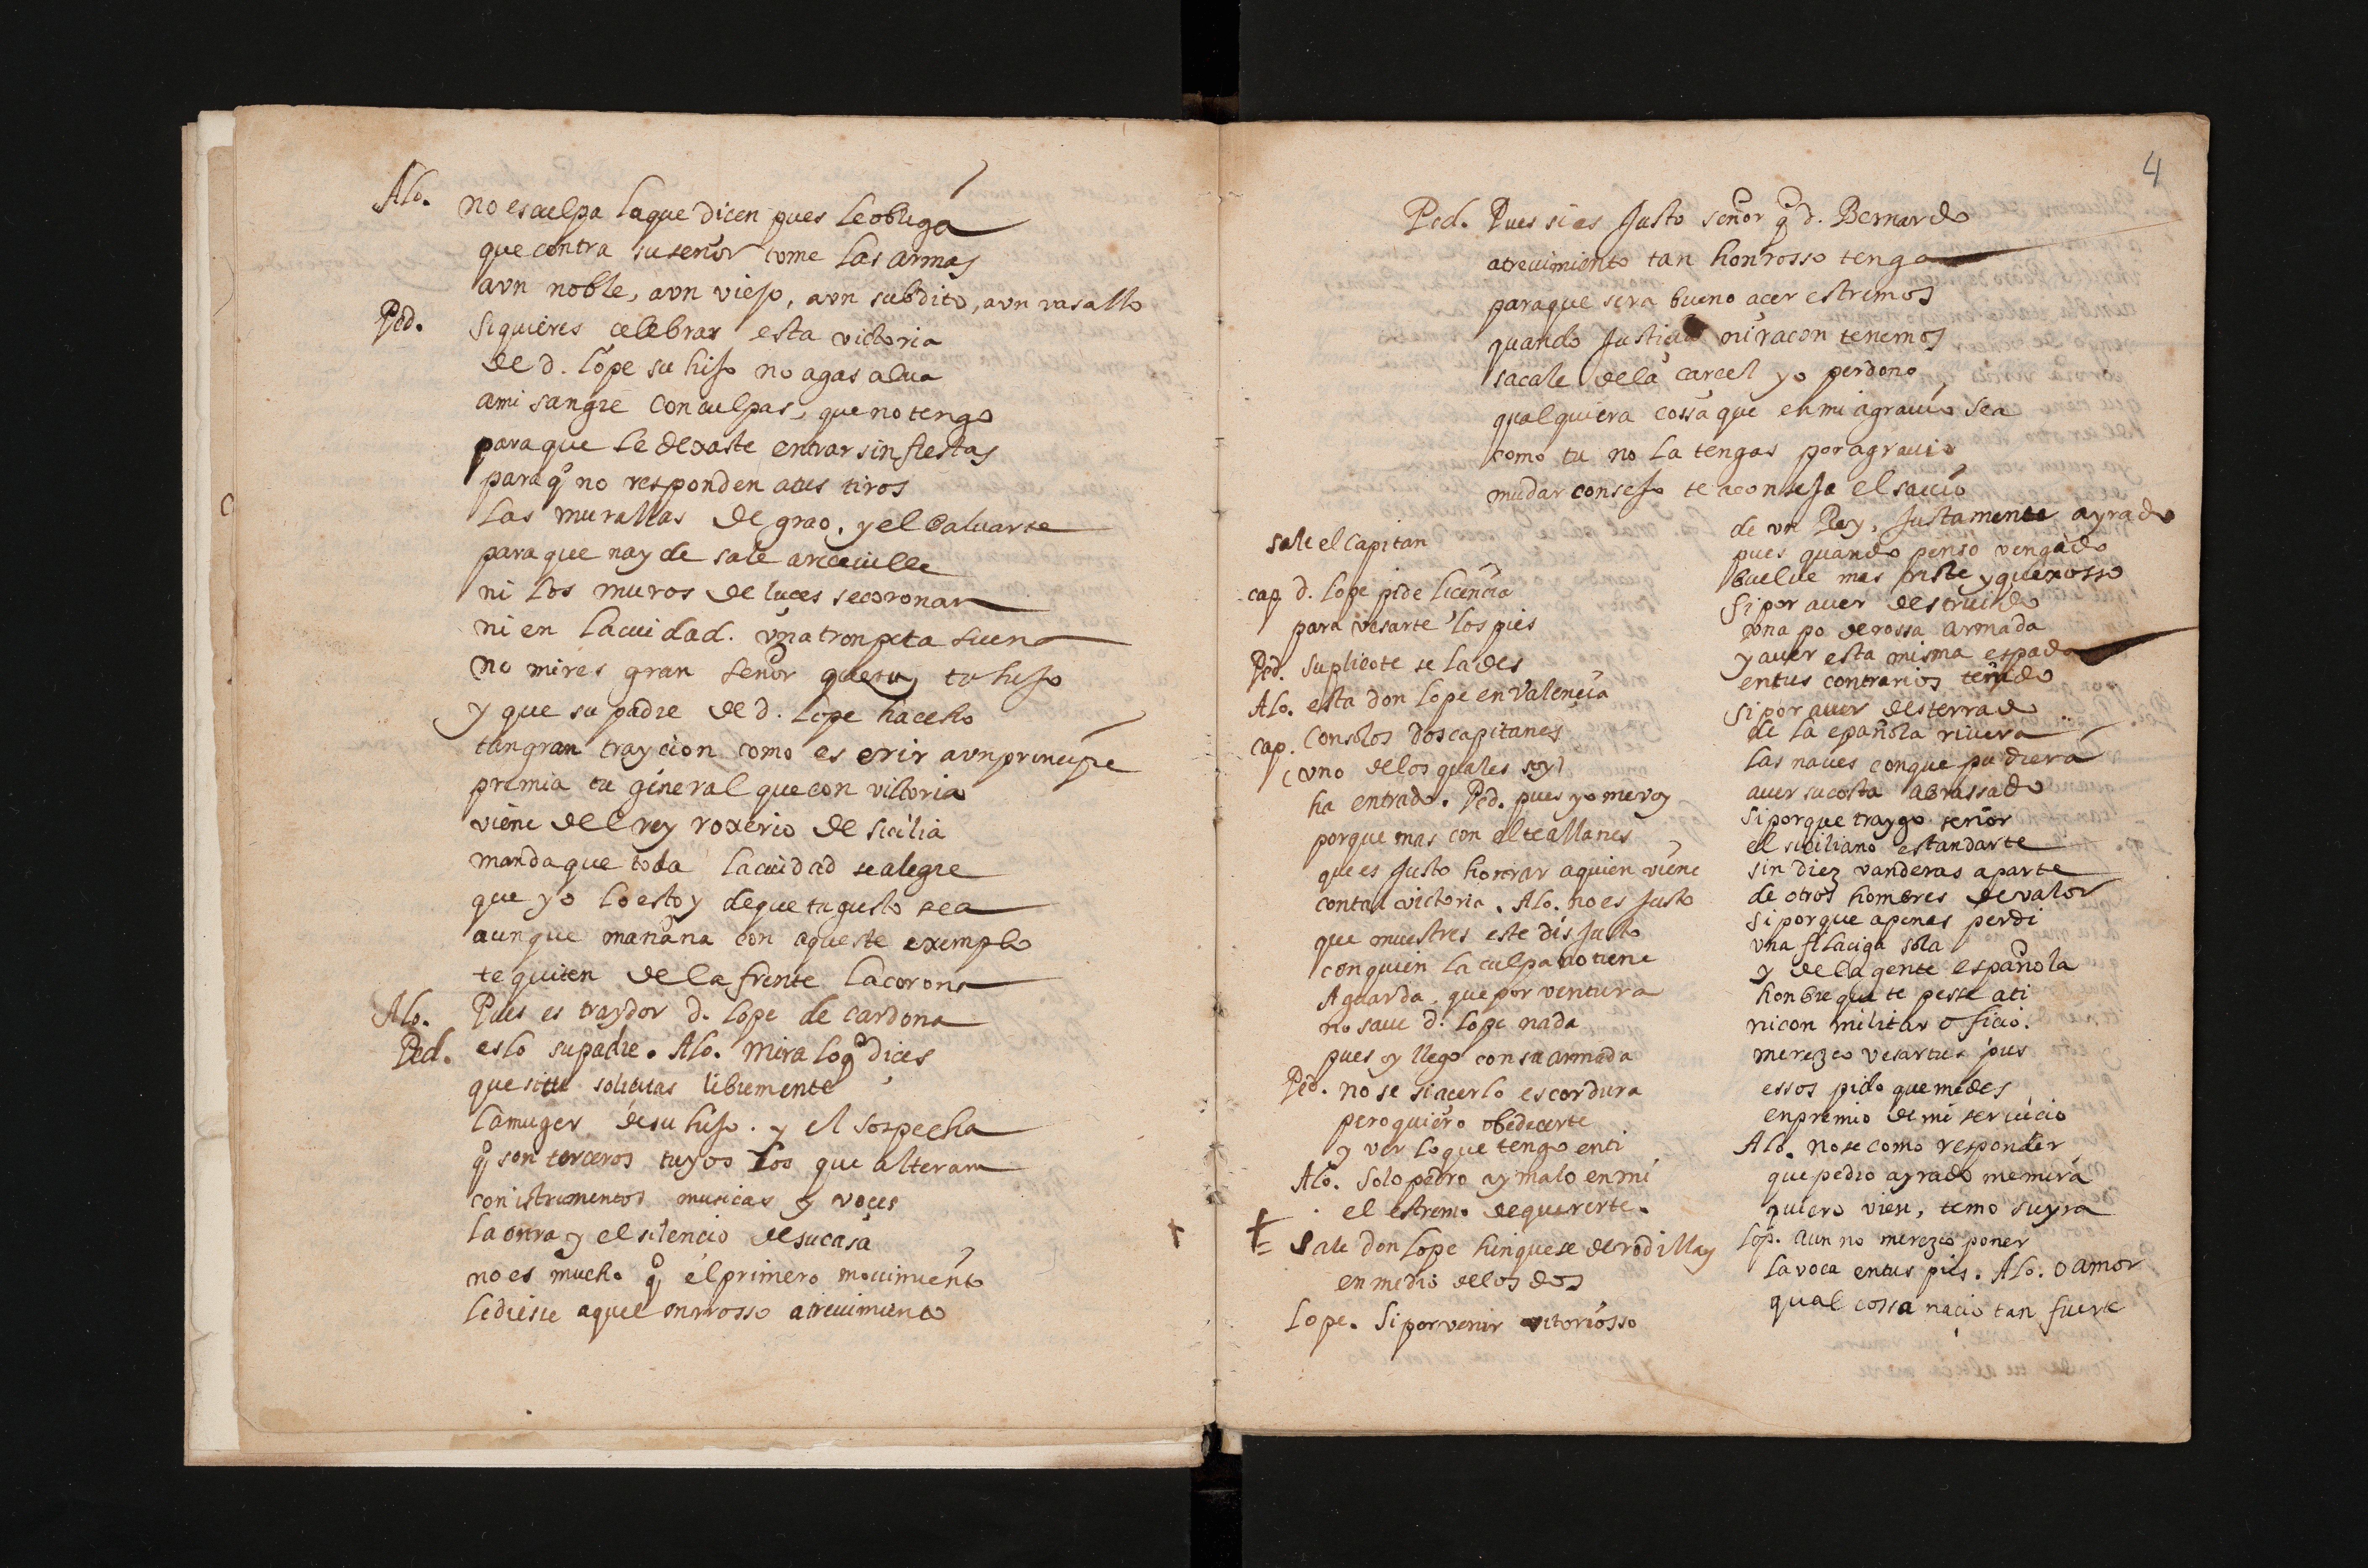 Alo. no es culpa la que dicen pues le obliga
que contra su señor tome las armas
a vn noble, a vn viejo, a vn subdito, a vn vasallo
Ped. si quieres celebrar esta victoria
de d. lope su hijo no agas alua
a mi sangre con culpas, que no tengo
para que le dexaste entrar sin fiestas
para q̃ no responden a tus tiros
las murallas de grao. y el baluarte
para que nayde sale a
ni los muros de luces se coronan
ni en la ciudad. vna tronpeta suena
no mires gran señor tu hijo
y que su padre de d. lope ha echo
tan gran traycion como es erir a vn principe
premia tu general que con vitoria
viene del rey roxerio de sicilia
manda que toda la ciudad se alegre
que yo lo estoy de que tu gusto sea
aunque mañana con aqueste exemplo
te quiten de la frente la corona
Alo. Pues es traydor d. lope de cardona
Ped. eslo su padre. Alo. mira lo q̃ dices
que si tu solicitas libremente
la muger de su hijo. y el sospecha
q̃ son terceros tuyos los que alteran
con istrumentos musicas y voces
la onrra y el silencio de su casa
no es mucho q̃ el primero mouimiento
le diese aquel onrrosso atreuimiento
4
Ped. Pues si es Justo señor q̃ d. Bernardo
atreuimiento tan honrrosso tenga
para que sera bueno acer estremos
quando Justicia ni racon tenemos
sacale de la carcel yo perdono
qualquiera cossa que en mi agrauio sea
como tu no la tengas por agrauio
mudar consejo te aconseja el sauio
sale el capitan
cap d. lope pide licencia
para vesarte los pies
Ped. suplicote se la des
Alo. esta don lope en valencia
cap. con solos dos capitanes
(vno de los quales soy)
ha entrado. Ped. pues yo me voy
porque mas con el te allanes
que es Justo honrrar a quien viene
con tal victoria. Alo. no es Justo
que muestres este disJusto
con quien la culpa no tiene
Aguarda. que por ventura
no saue d. lope nada
pues oy llego con su armada
Ped. no se si acerlo es cordura
pero quiero obedecerte
y ver lo que tengo en ti
Alo. solo pedro ay malo en mi
el estremo de quererte.
sale don lope hinquese de rodillas
en medio de los dos
Lope. Si por venir vitoriosso
de vn Rey, Justamente ayrado
pues quando penso vengado
buelue mas triste y quexosso
si por auer destruido
vna poderossa armada
y auer esta misma espada
en tus contrarios teñido
si por auer desterrado
de la epañola riuera
las naues con que pudiera
auer su costa abrassado
si porque traygo señor
el siciliano estandarte
sin diez vanderas aparte
de otros hombres de valor
si porque apenas perdi
vna filaciga sola
y de la gente española
honbre que te pesse a ti
ni con militar oficio.
merezco vesar tus pies
essos pido que me des
en premio de mi seruicio
Alo. no se como responder
que pedro ayrado me mira
quiero vien, temo su yra
lop. aun no merezco poner
la voca en tus pies. Alo. o amor
qual cossa nacio tan fuerte